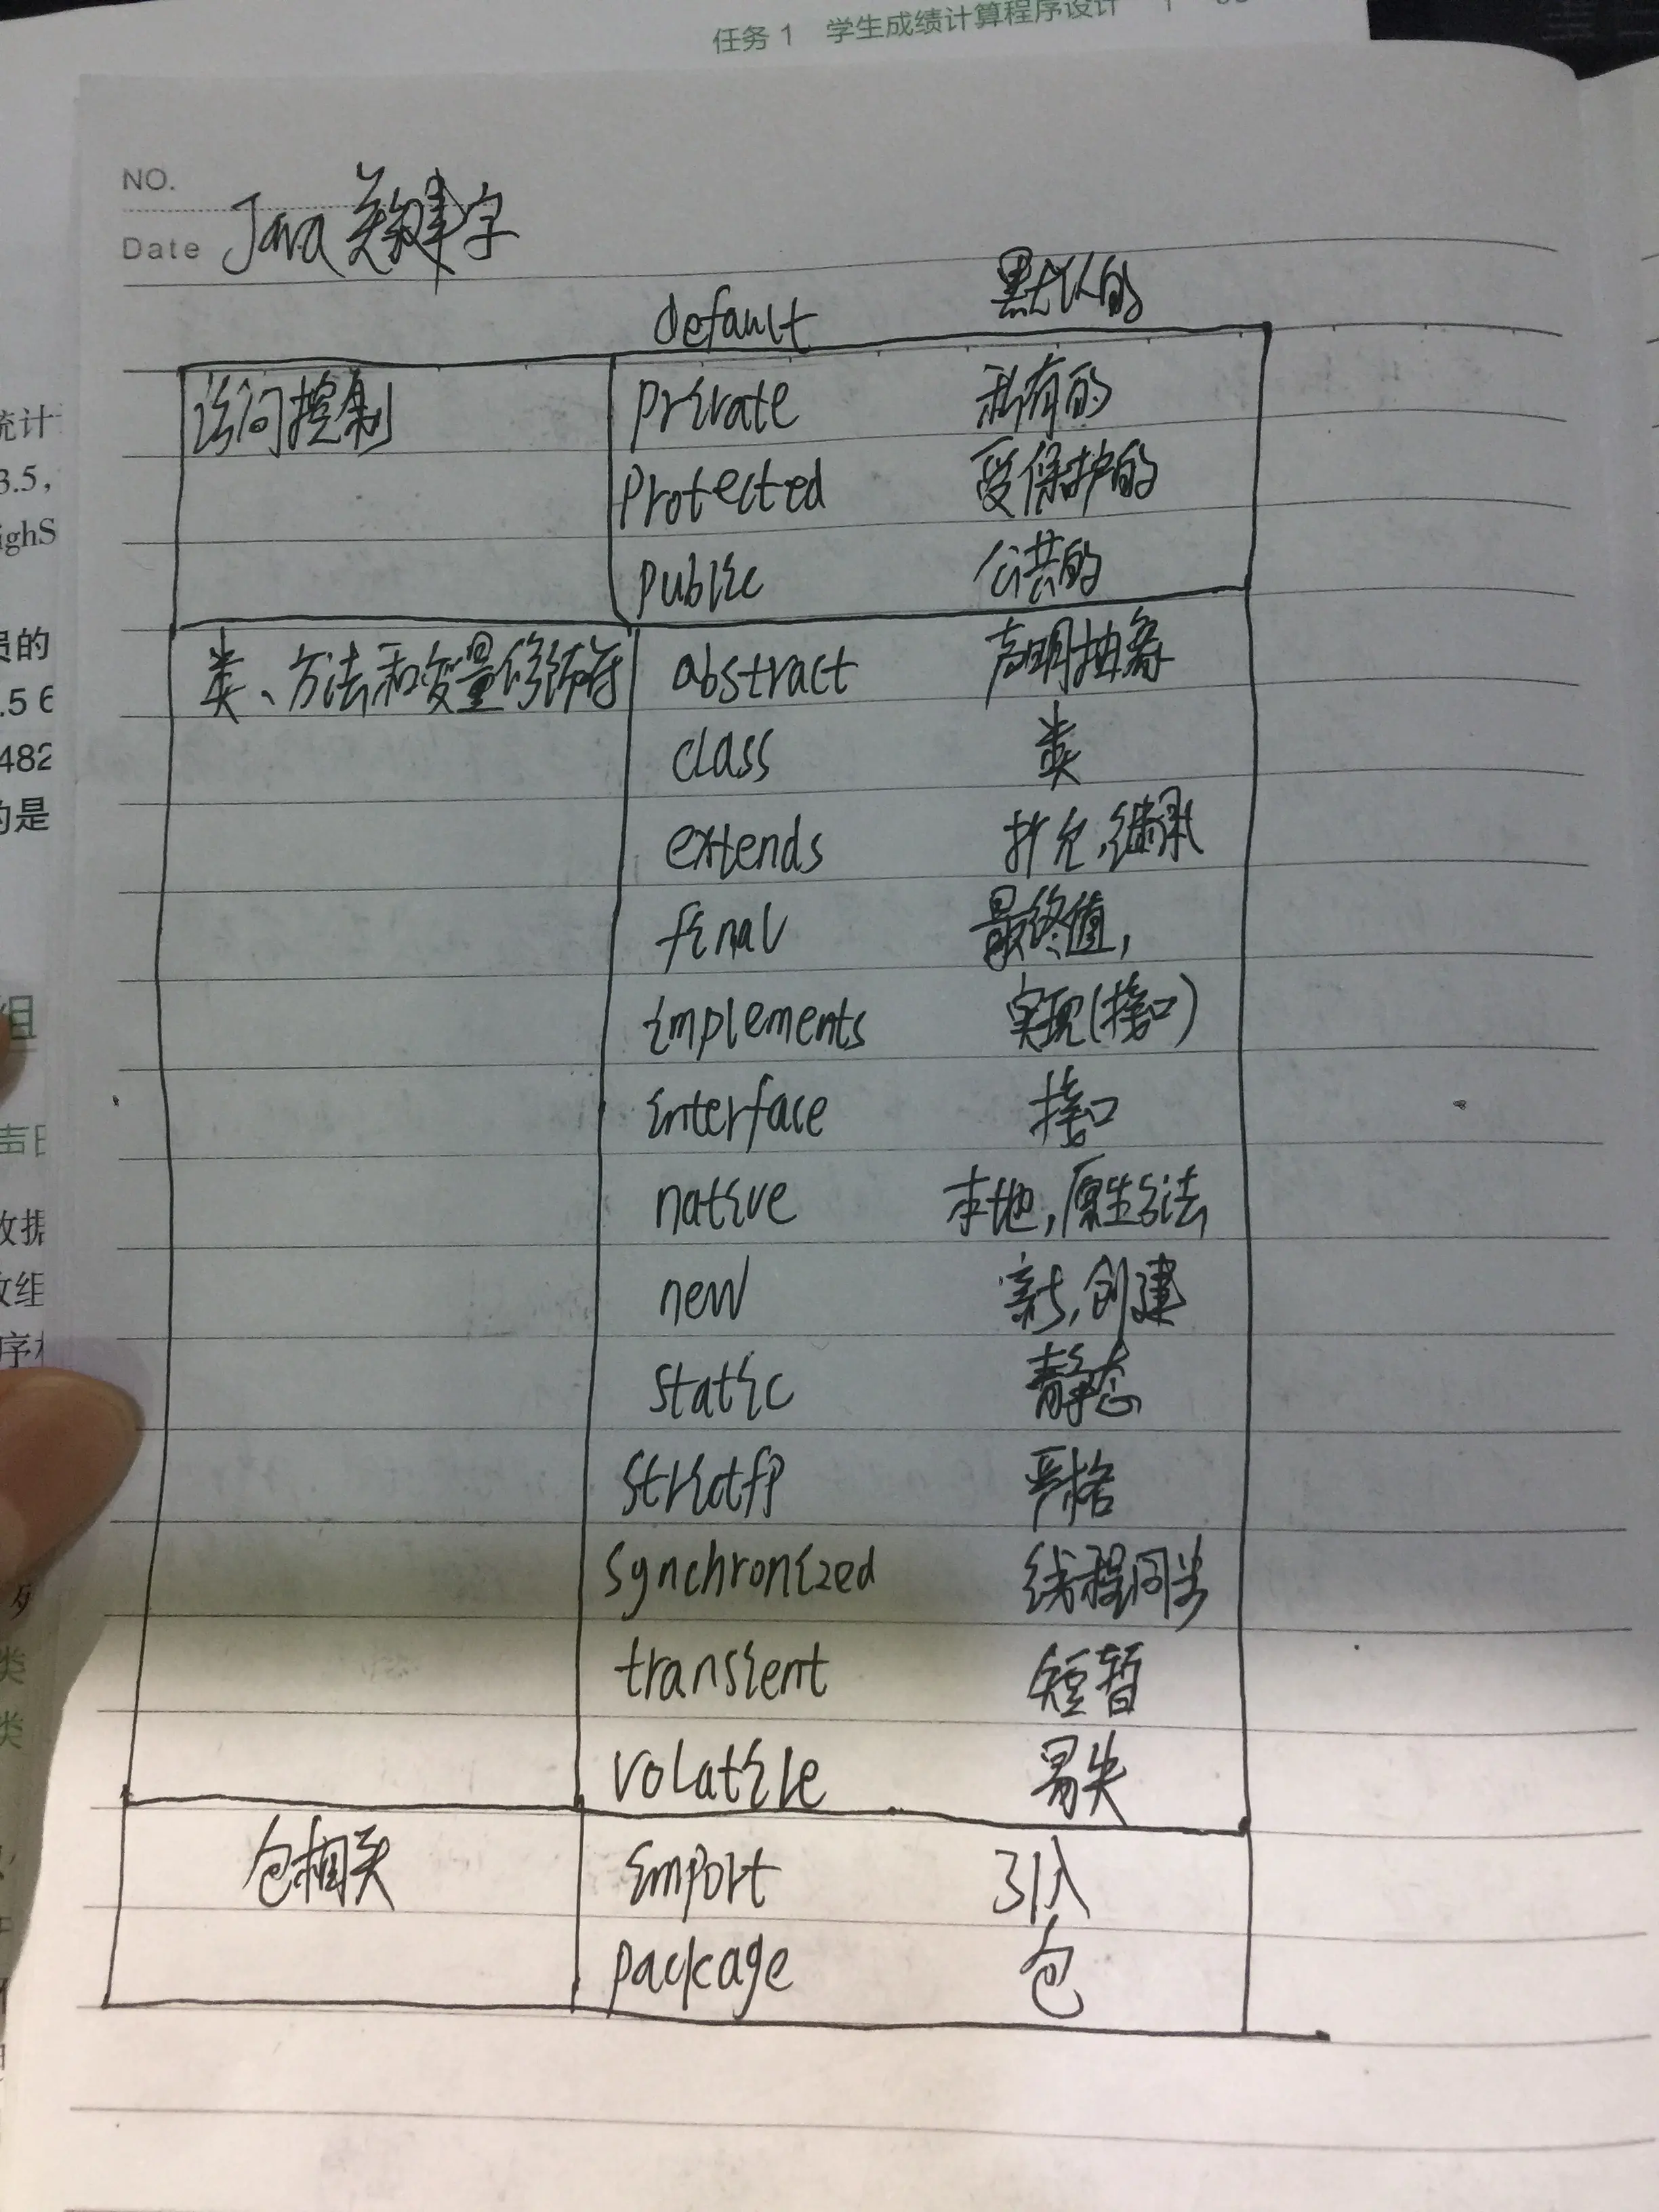 任务1 学生成绩计算程序设计
NO.
Date Java 关键字
default 默认的
访问控制 private 私有的
protected 受保护的
public 公共的
类、方法和变量修饰符 abstract 声明抽象
class 类
extends 扩充,继承
final 最终值,
implements 实现(接口)
interface 接口
native 本地,原生方法
new 新,创建
static 静态
strictfp 严格
synchronized 线程同步
transient 短暂
volatile 易失
包相关 import 引入
package 包
统计
3.5,
ighS
员的
.5 6
482
的是
组
类
类